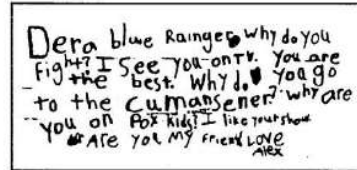 Dera blue Rainger, Why do you
Fight? I See you on TV. You are
the best. Why do you go
to the cumansener? Why are
you on Fox Kids? I like your show
Are you My Friend Love
Alex